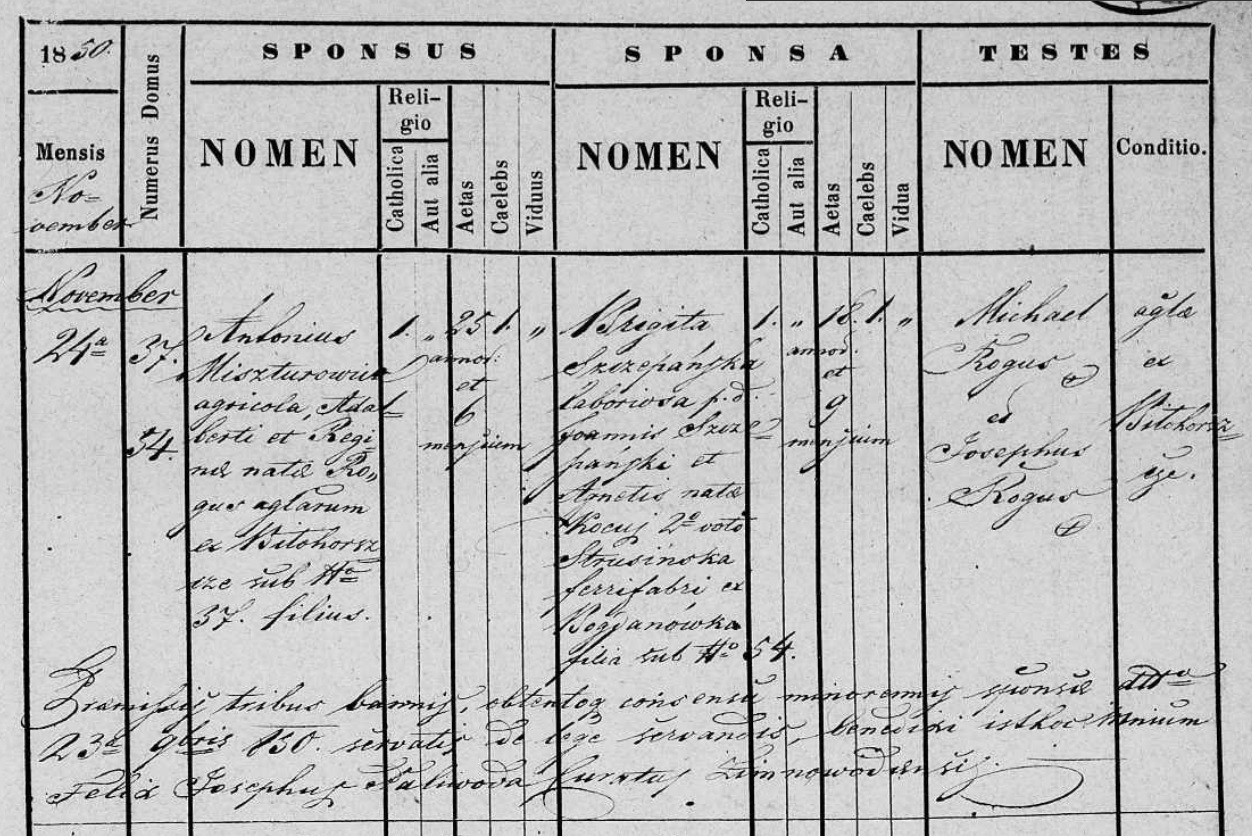 1850.
Mensis
No=
vember
Numerus Domus
SPONSUS
NOMEN
Religio
Catholica
Aut alia
Aetas
Caelebs
Viduus
SPONSA
NOMEN
Religio
Catholica
Aut alia
Aetas
Caelebs
Vidua
TESTES
NOMEN
Conditio.
November
24ª
37.
54.
Antonius
Miszturowicz
agricola, Adal=
berti et Regi
næ natæ Ro„
gus agłarum
ex Bilohorsz
cze sub Nº
37. filius.
1. „ 25 1. „
annor:
et
6
mensium
Brigita
Szczepańska
laboriosa p.d.
Joannis Szcze=
pański et
Agnetis natæ
Kocuj 2º voto
Strusińska
ferrifabri ex
Bogdanówka
filia sub Nº 54.
1. „ 18. 1. „
annor.
et
9
mensium
Michael
Rogus +
et
Josephus
Rogus
+
agłæ
ex
Bilohorsz=
cze.
Præmissis tribus bannis, obtentoq consensu minorennis sponsæ ddto
23ª 9bris 850. servatis de lege servandis, benedixi isthoc
Felix Josephus Paliwoda Curatus Zimnowodensis.